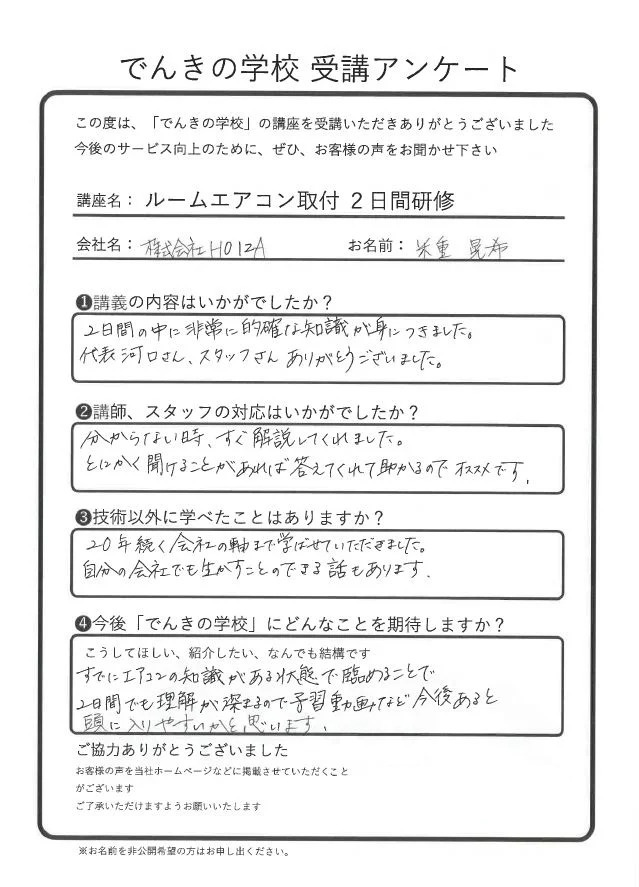 でんきの学校 受講アンケート
この度は、「でんきの学校」の講座を受講いただきありがとうございました
今後のサービス向上のために、ぜひ、お客様の声をお聞かせ下さい
講座名： ルームエアコン取付 ２日間研修
会社名： 株式会社HO12A お名前： 米重 晃希
❶講義の内容はいかがでしたか？
2日間の中に非常に的確な知識が身につきました。
代表河口さん、スタッフさんありがとうございました。
❷講師、スタッフの対応はいかがでしたか？
分からない時、すぐ解説してくれました。
とにかく聞けることがあれば答えてくれて助かるのでオススメです.
❸技術以外に学べたことはありますか？
20年続く会社の軸まで学ばせていただきました。
自分の会社でも生かすことのできる話もあります.
❹今後「でんきの学校」にどんなことを期待しますか？
こうしてほしい、紹介したい、なんでも結構です
すでにエアコンの知識がある状態で臨めることで
2日間でも理解が深まるので予習動画など今後あると
頭に入りやすいかと思います.
ご協力ありがとうございました
お客様の声を当社ホームページなどに掲載させていただくこと
がございます
ご了承いただけますようお願いいたします
※お名前を非公開希望の方はお申し出ください。